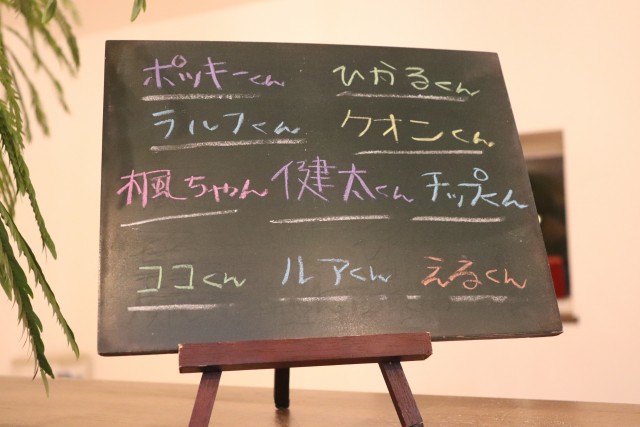 ポッキーくん ひかるくん
ラルフくん クオンくん
楓ちゃん 健太くん チップくん
ココくん ルアくん えるくん